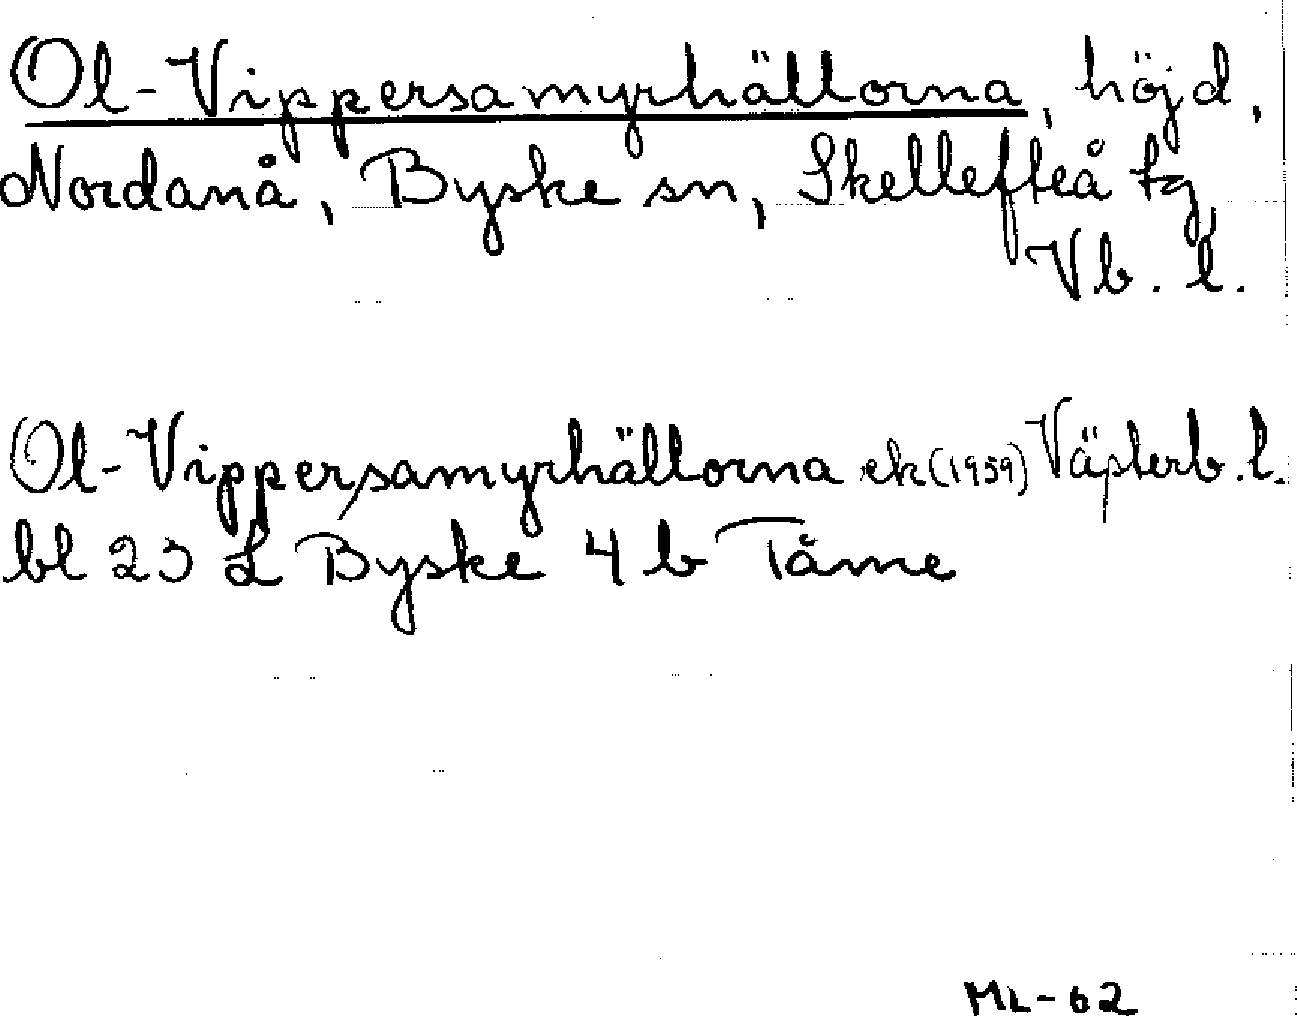 Ol-Vippersamyrhällorna, höjd,
Nordanå, Byske sn, Skellefteå tg,
Vb. l.
Ol-Vippersamyrhällorna ek (1959) Västerb. l.
bl 23 L Byske 4 b Tåme
ML-62